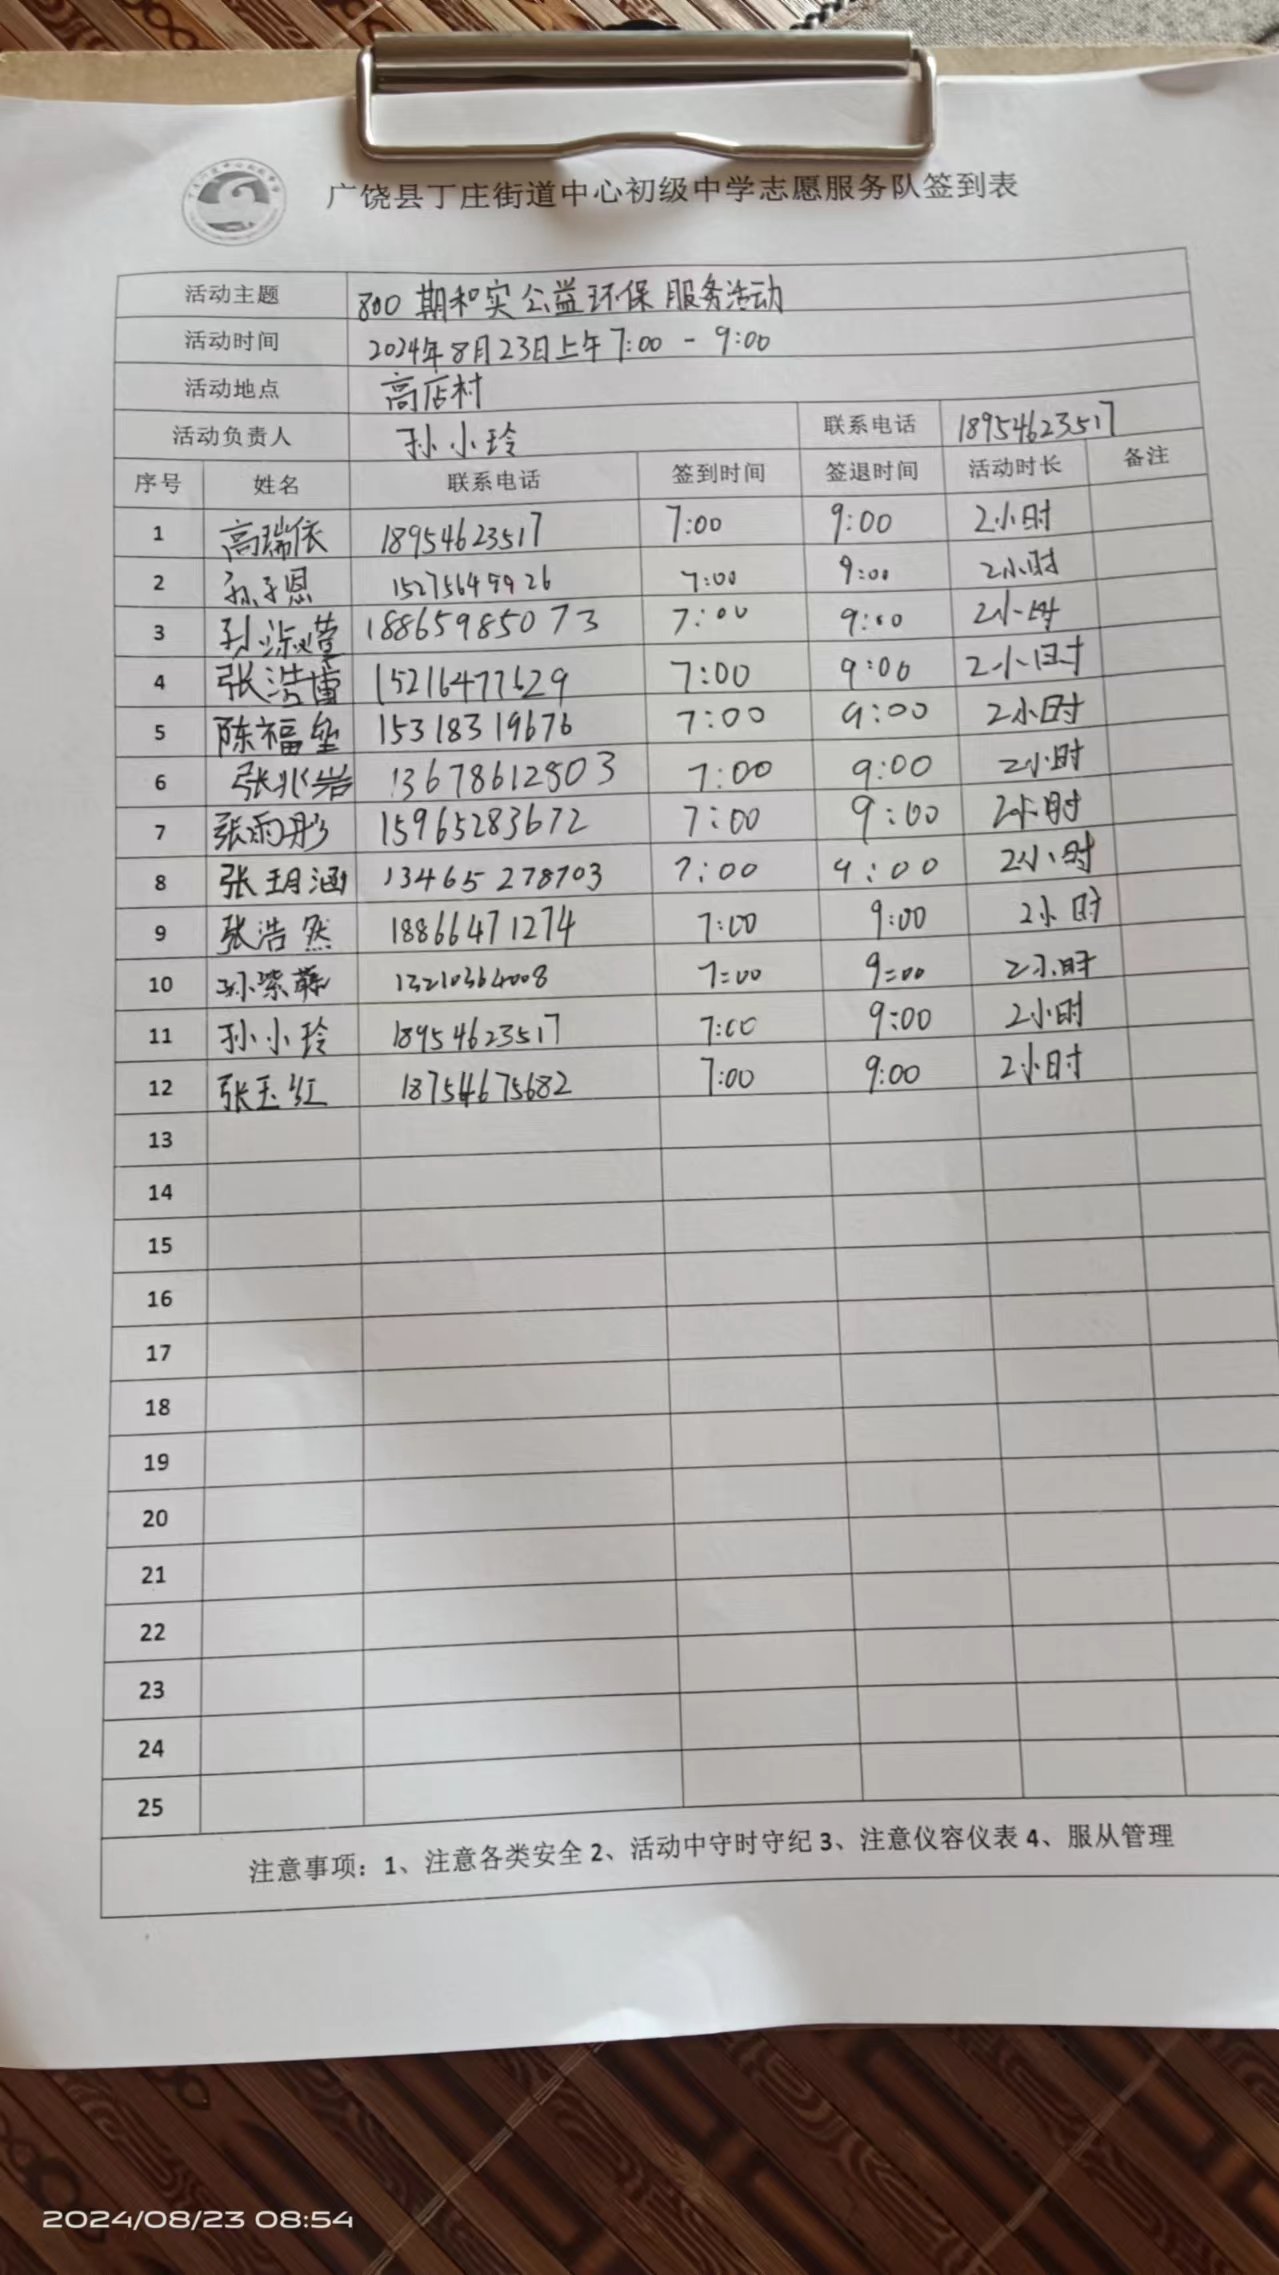 广饶县丁庄街道中心初级中学志愿服务队签到表
活动主题 800期和实公益环保服务活动
活动时间 2024年8月23日上午7:00-9:00
活动地点 高店村
活动负责人 孙小玲 联系电话 18954623517
序号 姓名 联系电话 签到时间 签退时间 活动时长 备注
1 高瑞依 18954623517 7:00 9:00 2小时
2 孙子恩 7:00 9:00 2小时
3 孙淑萱 18865985073 7:00 9:00 2小时
4 张浩博 15216477629 7:00 9:00 2小时
5 陈福垒 15318319676 7:00 9:00 2小时
6 张兆岩 13678612503 7:00 9:00 2小时
7 张雨彤 15965283672 7:00 9:00 2小时
8 张玥涵 13465278703 7:00 9:00 2小时
9 张浩然 18866471274 7:00 9:00 2小时
10 孙紫薇 13210364008 7:00 9:00 2小时
11 孙小玲 18954623517 7:00 9:00 2小时
12 张玉红 18754675682 7:00 9:00 2小时
13
14
15
16
17
18
19
20
21
22
23
24
25
注意事项：1、注意各类安全 2、活动中守时守纪 3、注意仪容仪表 4、服从管理
2024/08/23 08:54